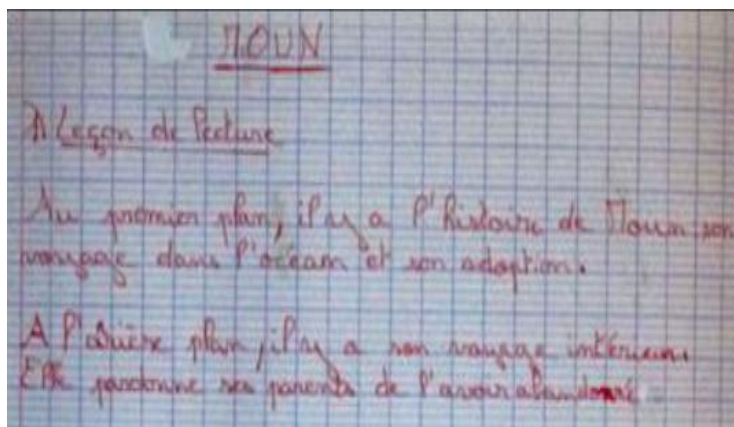 MOUN
1) Leçon de lecture
Au premier plan, il y a l'histoire de Moun son
voyage dans l'océan et son adoption.
A l'arrière plan, il y a son voyage intérieur.
Elle pardonne ses parents de l'avoir abandonné.